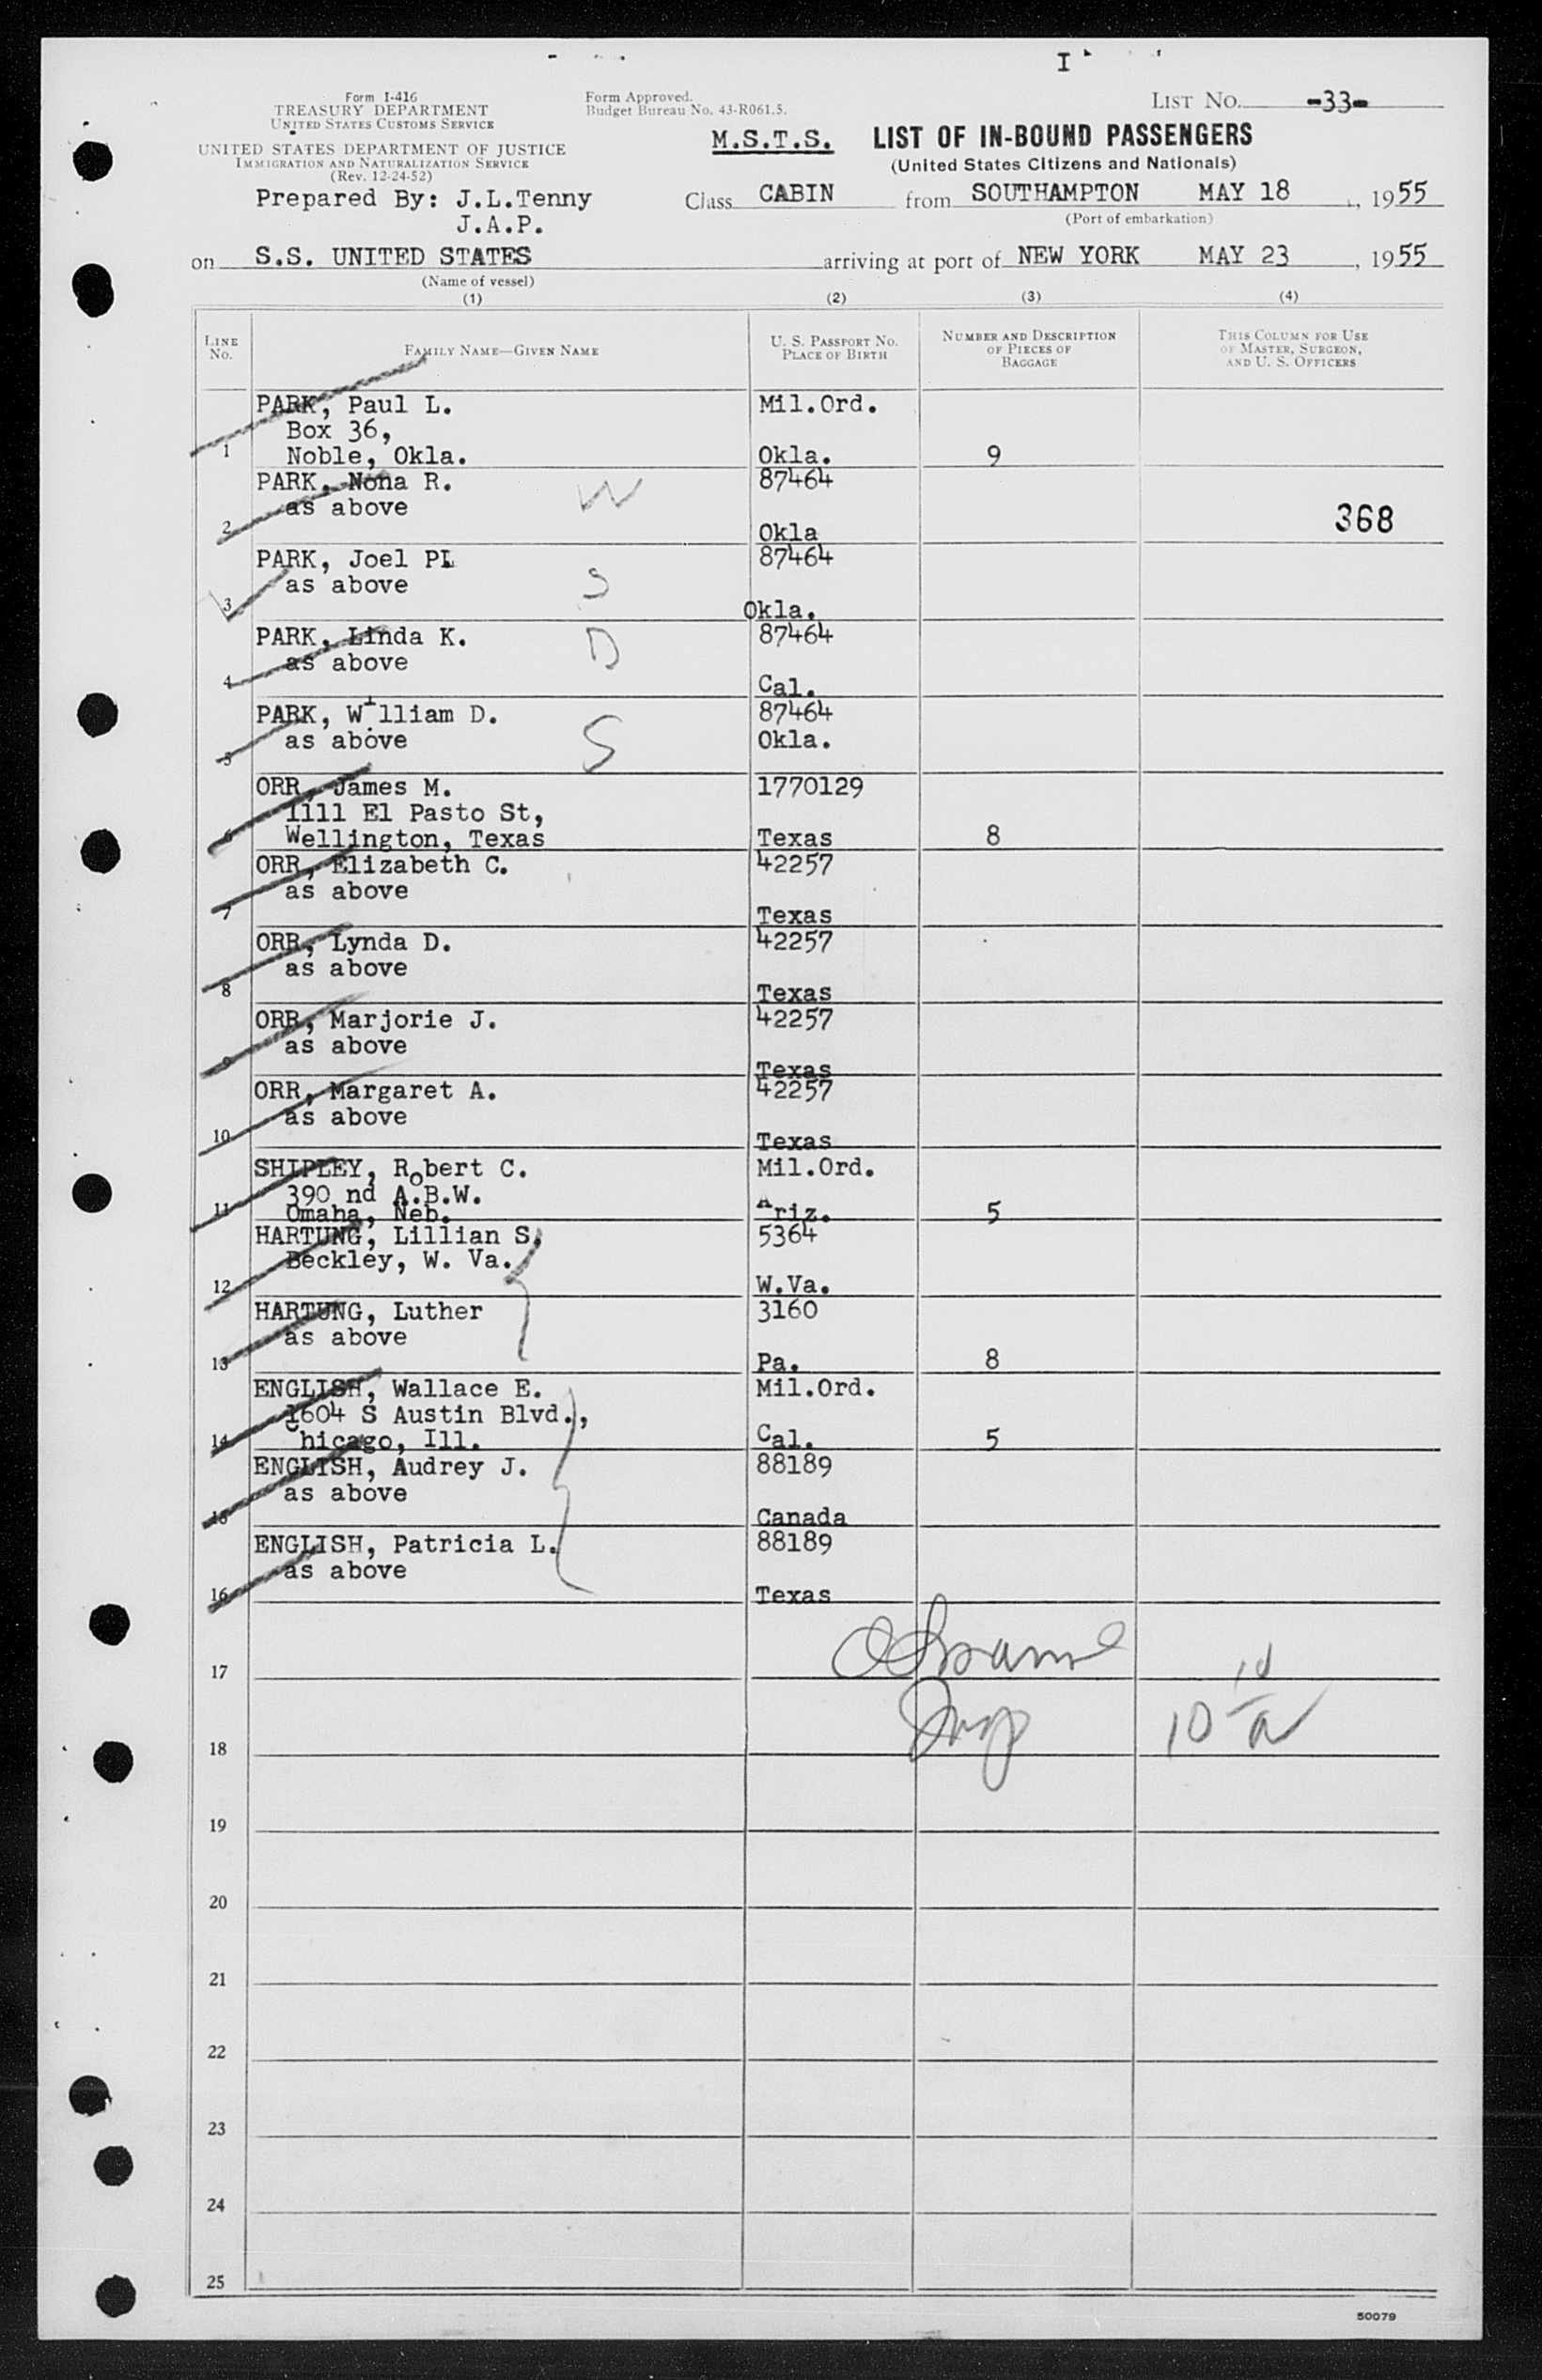 I
Form I-416
TREASURY DEPARTMENT
UNITED STATES CUSTOMS SERVICE
UNITED STATES DEPARTMENT OF JUSTICE
IMMIGRATION AND NATURALIZATION SERVICE
(Rev. 12-24-52)
Form Approved.
Budget Bureau No. 43-R061.5.
LIST NO. -33-
M.S.T.S. LIST OF IN-BOUND PASSENGERS
(United States Citizens and Nationals)
Prepared By: J.L.Tenny
J.A.P.
Class CABIN from SOUTHAMPTON MAY 18, 1955
(Port of embarkation)
on S.S. UNITED STATES arriving at port of NEW YORK MAY 23, 1955
(Name of vessel)
(1) (2) (3) (4)
LINE NO. FAMILY NAME—GIVEN NAME U. S. PASSPORT NO. PLACE OF BIRTH NUMBER AND DESCRIPTION OF PIECES OF BAGGAGE THIS COLUMN FOR USE OF MASTER, SURGEON, AND U. S. OFFICERS
PARK, Paul L. Mil.Ord.
Box 36,
1 Noble, Okla. Okla. 9
PARK, Nona R. W 87464
as above 368
2 Okla
PARK, Joel PL 87464
as above S
3 Okla.
PARK, Linda K. D 87464
as above
4 Cal.
PARK, William D. 87464
5 as above S Okla.
ORR, James M. 1770129
1111 El Pasto St,
6 Wellington, Texas Texas 8
ORR, Elizabeth C. 42257
as above
7 Texas
ORR, Lynda D. 42257
as above
8 Texas
ORR, Marjorie J. 42257
as above
9 Texas
ORR, Margaret A. 42257
as above
10 Texas
SHIPLEY, Robert C. Mil.Ord.
390 nd A.B.W.
11 Omaha, Neb. Ariz. 5
HARTUNG, Lillian S. 5364
Beckley, W. Va.
12 W.Va.
HARTUNG, Luther 3160
as above
13 Pa. 8
ENGLISH, Wallace E. Mil.Ord.
1604 S Austin Blvd.,
14 Chicago, Ill. Cal. 5
ENGLISH, Audrey J. 88189
as above
15 Canada
ENGLISH, Patricia L. 88189
as above
16 Texas
17
18 10
19
20
21
22
23
24
25
50079